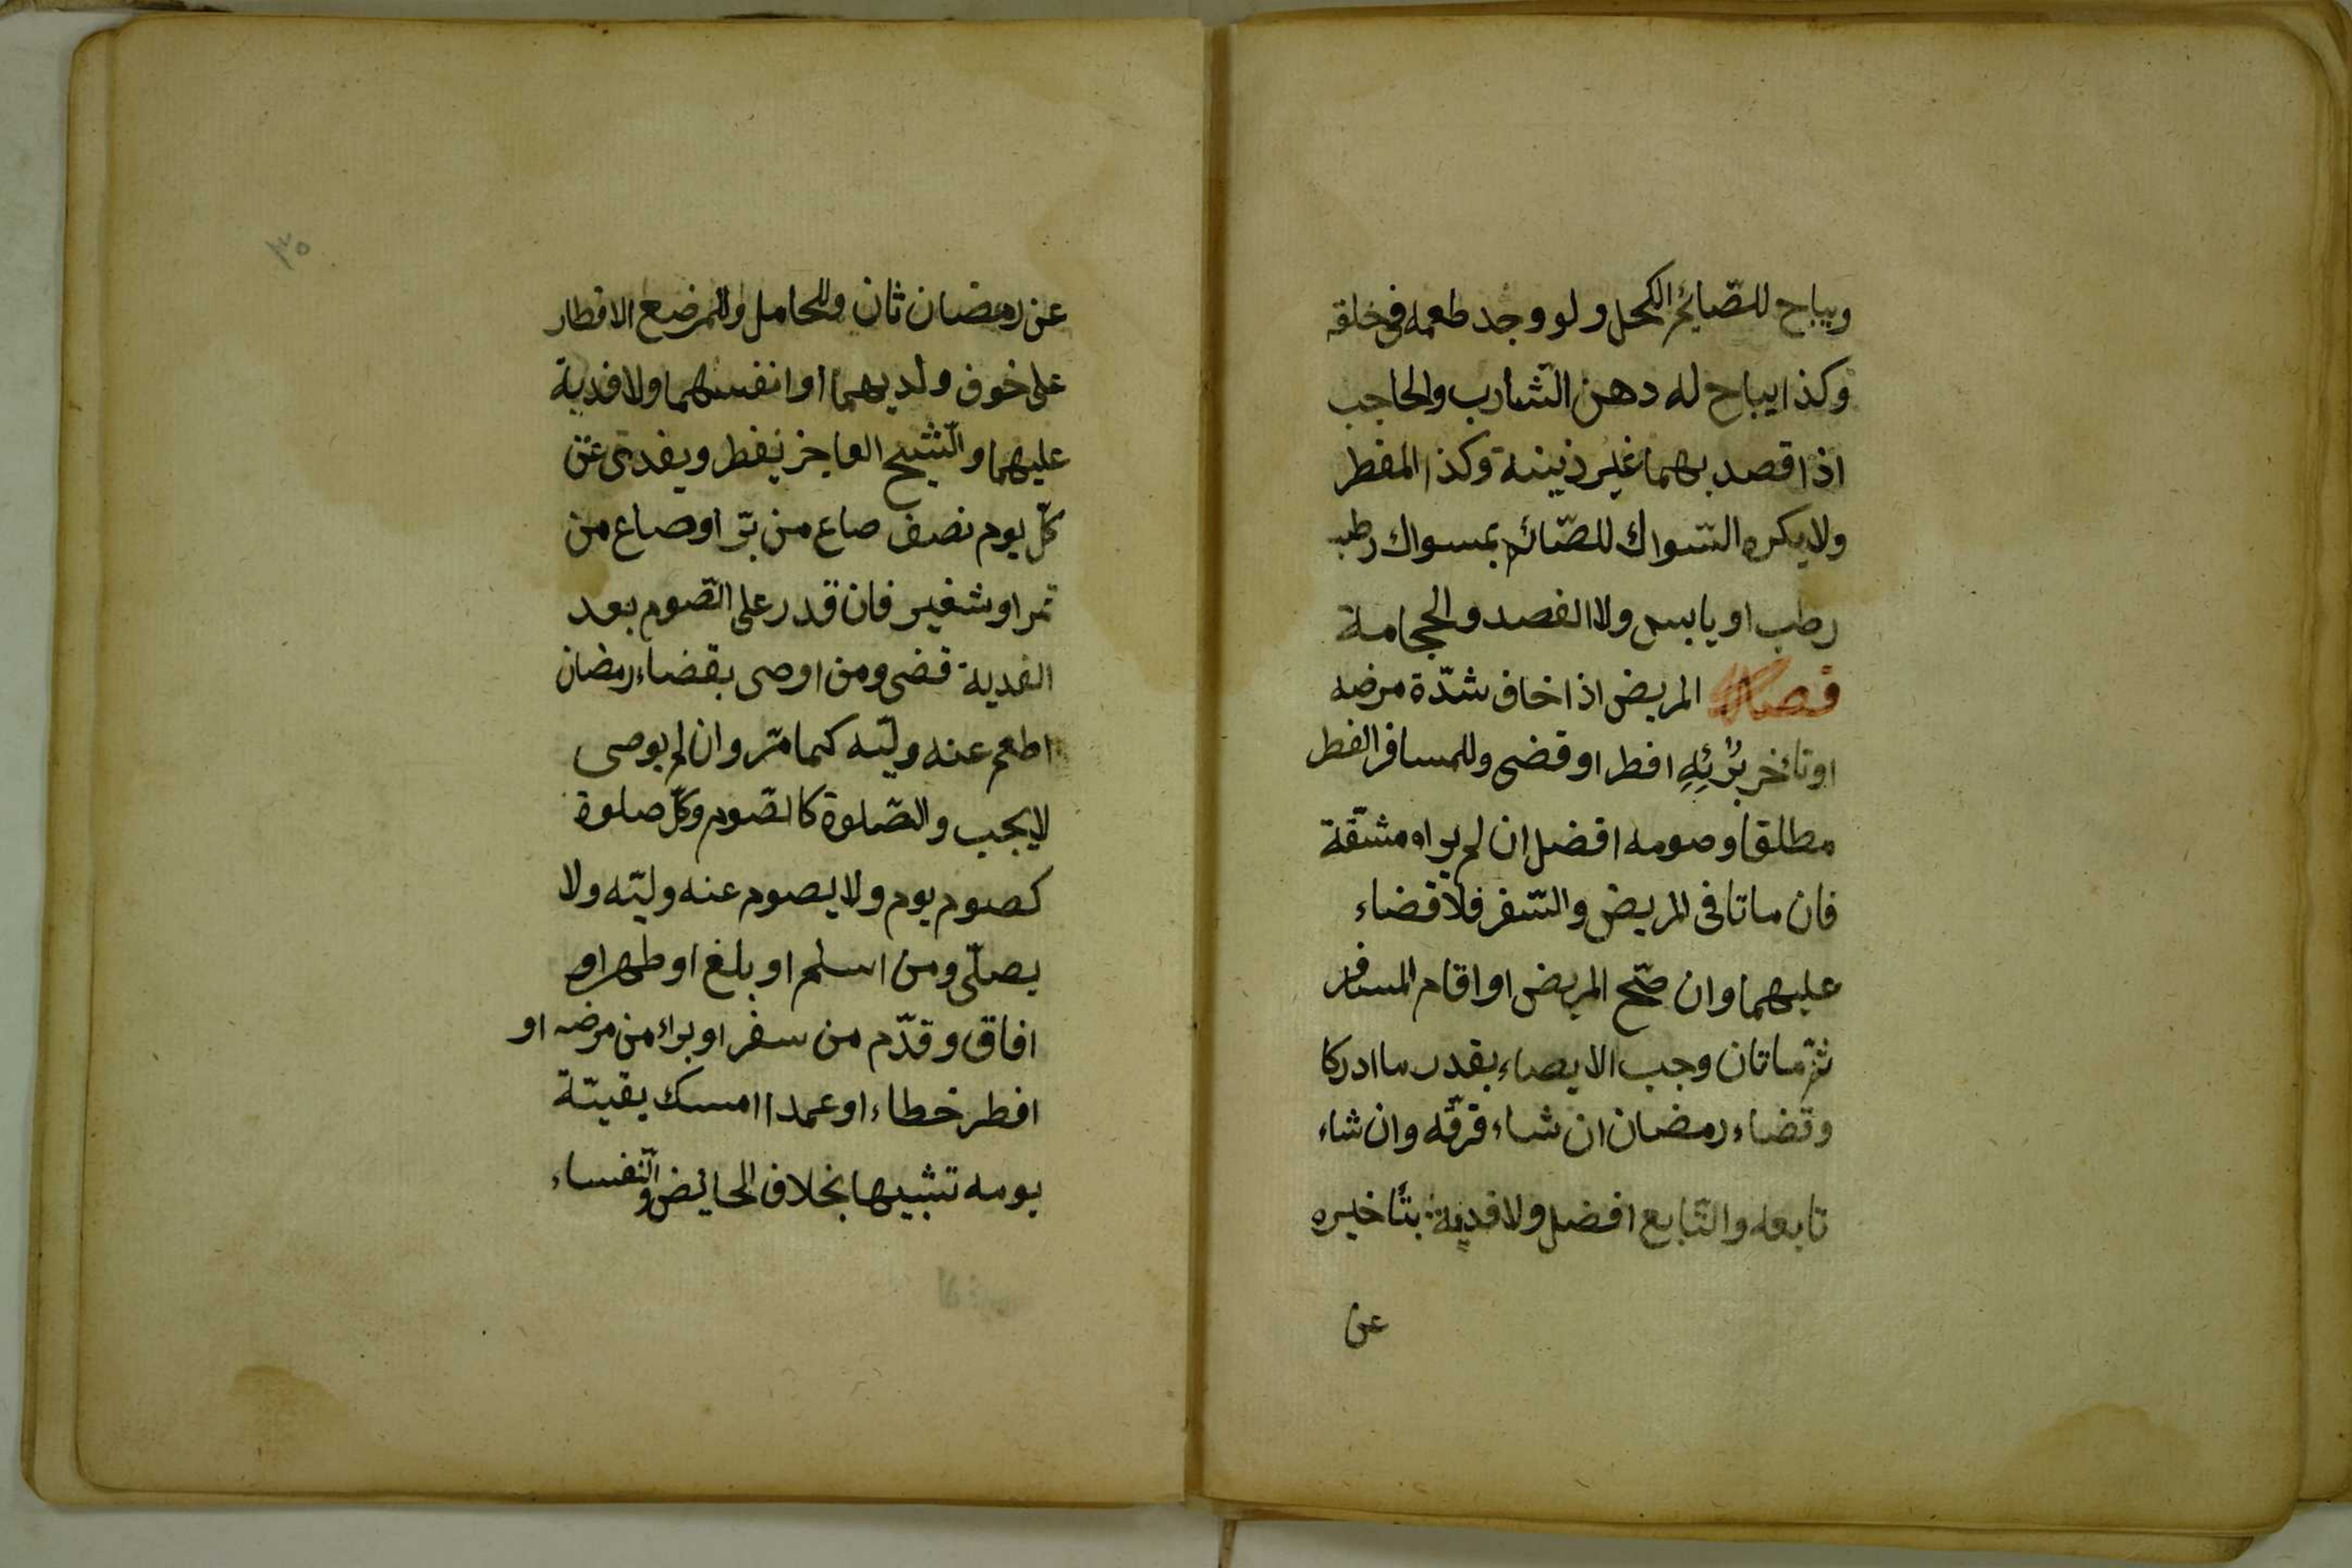 ويباح للصّايم الكحل ولو وجد طعمه فى خلقه
وكذا يباح له دهن الشّارب والحاجب
اذا قصد بهما غير ذينة وكذا المفطر
ولا يكره السّواك للصّائم بمسواك رطب
رطب او يابس ولا الفصد والحجامة
فصل المريض اذا خاف شدّة مرضه
او تاخر بُرْئِهِ افطر او قضى وللمسافر الفطر
مطلقا وصومه افضل ان لم يراه مشقّة
فان ماتا فى المريض والسّفر فلا قضاء
عليهما وان صحّ المريض او اقام المسافر
ثمّ ماتان وجب الايصاء بقدر ما ادركا
وقضاء رمضان ان شاء فرقّه وان شاء
تابعه والتّابع افضل ولا فدية بتاخيره
عن
٣٥
عن رمضان ثان وللحامل وللمرضع الافطار
على خوف ولديهما او انفسهما ولا فدية
عليهما والشّيخ العاجز يفطر ويفدى عن
كلّ يوم نصف صاع من برّ او صاع من
تمر او شغير فان قدر على الصّوم بعد
الفدية قضى ومن اوصى بقضاء رمضان
اطعم عنه وليّه كما مرّ وان لم يوصى
لا يجب والصّلوة كالصّوم وكلّ صلوة
كصوم يوم ولا يصوم عنه وليّه ولا
يصلّى ومن اسلم او بلغ او طهر او
افاق وقدّم من سفر او براء من مرضه او
افطر خطاء او عمدا امسك بقيّة
يومه تشبيها بخلاف الحايض والنّفساء